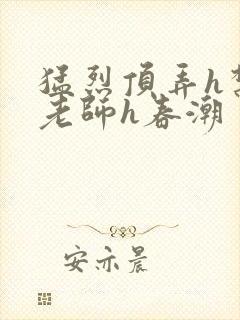 猛烈頂弄h
老師h春潮
安亦晨